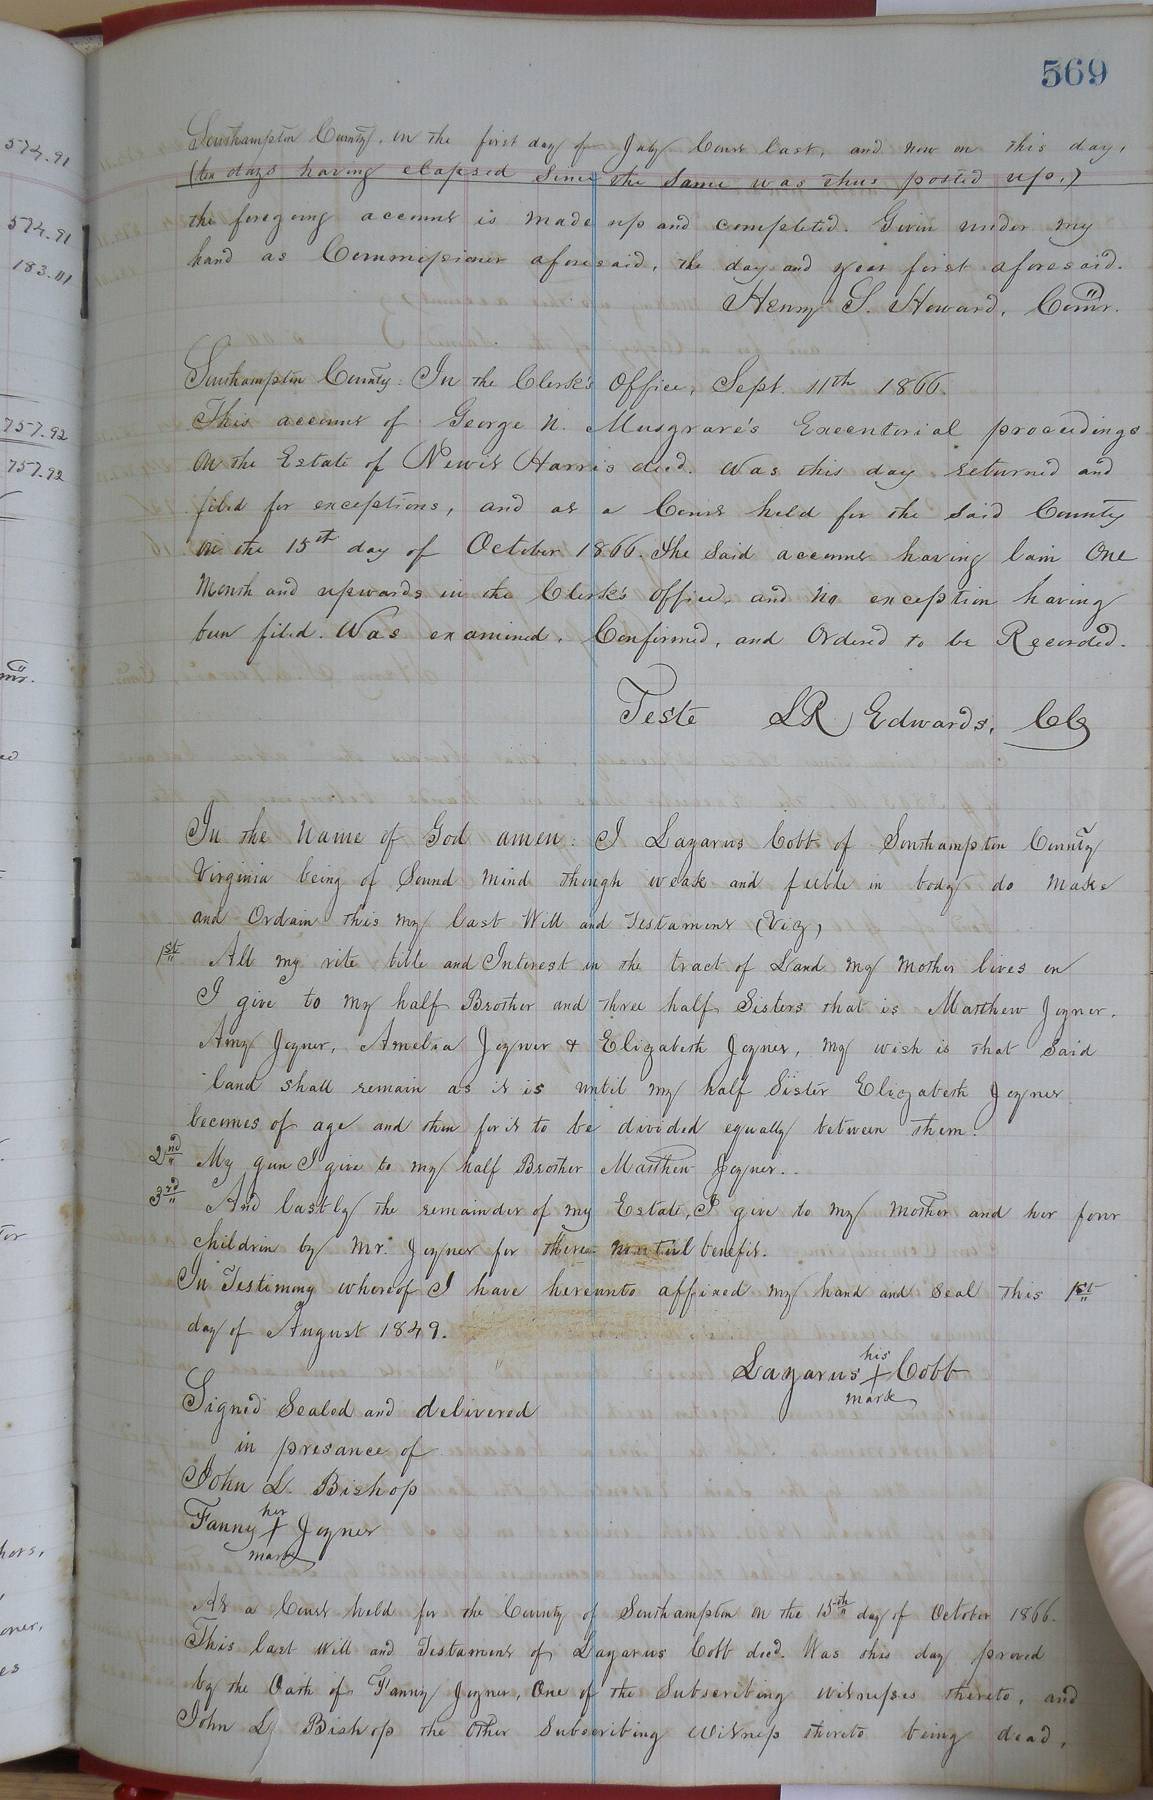 569
574.91
574.91
183.01
757.92
757.92
Southampton County, on the first day of July Court last, and now on this day,
(ten days having elapsed since the same was thus posted up,)
the foregoing account is made up and completed. Given under my
hand as Commissioner aforesaid, the day and year first aforesaid.
Henry S. Howard, Comr.
Southampton County: In the Clerk's Office, Sept. 11th 1866.
This account of George N. Musgrave's Executorial proceedings
on the Estate of Newit Harris decd. Was this day returned and
filed for exceptions, and at a Court held for the said County
on the 15th day of October 1866. The said account having lain One
Month and upwards in the Clerk's office, and no exception having
been filed. Was examined, Confirmed, and Ordered to be Recorded.
Teste LR Edwards, CC
In the Name of God amen: I Lazarus Cobb of Southampton County
Virginia being of Sound mind though weak and feeble in body do make
and Ordain this my last Will and Testament (Viz)
1st All my rite title and Interest in the tract of Land my mother lives on
I give to my half Brother and three half Sisters that is Matthew Joyner,
Amy Joyner, Amelia Joyner & Elizabeth Joyner, my wish is that said
land shall remain as it is until my half Sister Elizabeth Joyner
becomes of age and then for it to be divided equally between them.
2nd My gun I give to my half Brother Matthew Joyner.
3rd And lastly the remainder of my Estate, I give to my mother and her four
children by Mr. Joyner for there mutul benefit.
In Testimony whereof I have hereunto affixed my hand and seal this 1st
day of August 1849.
his
Lazarus + Cobb
mark
Signed Sealed and delivered
in presance of
John L. Bishop
her
Fanny + Joyner
mark
At a Court held for the County of Southampton on the 15th day of October 1866.
This last Will and Testament of Lazarus Cobb decd. Was this day proved
by the Oath of Fanny Joyner, One of the Subscribing witnesses thereto, and
John L. Bishop the other Subscribing Witness thereto being dead,